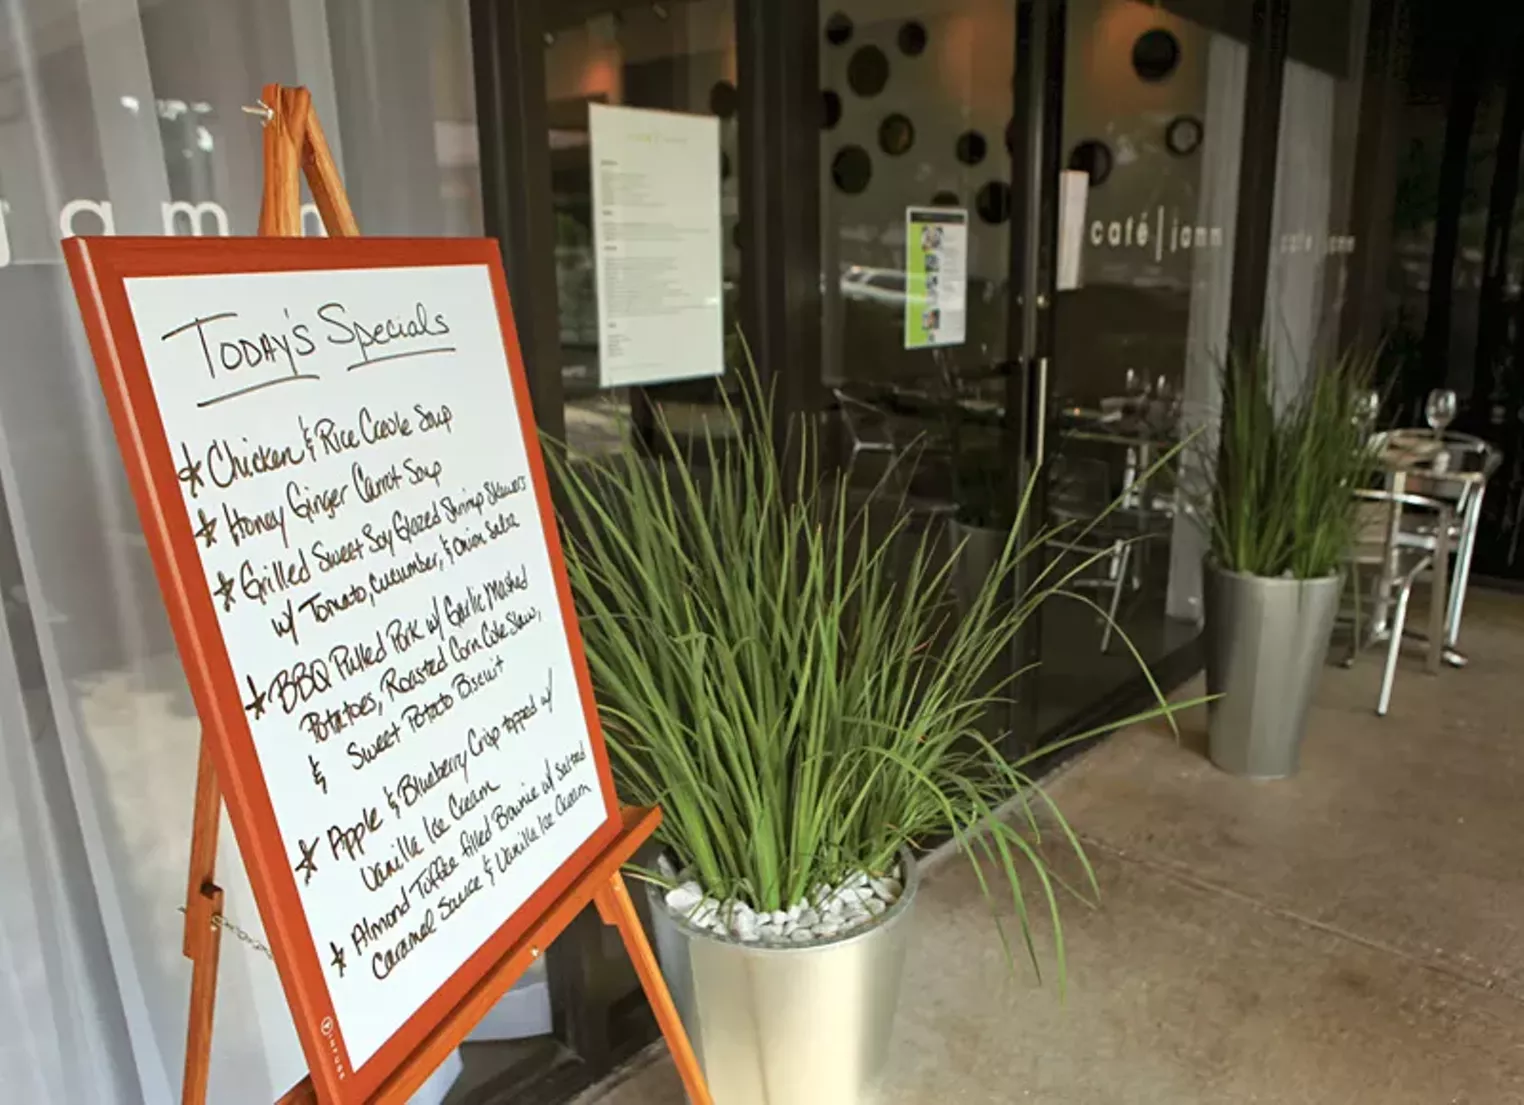 Today's Specials
* Chicken & Rice Creole Soup
* Honey Ginger Carrot Soup
* Grilled Sweet Soy Glazed Shrimp Skewers
w/ Tomato, Cucumber, & Onion Salsa
* BBQ Pulled Pork w/ Garlic Mashed
Potatoes, Roasted Corn Cole Slaw,
& Sweet Potato Biscuit
* Apple & Blueberry Crisp topped w/
Vanilla Ice Cream
* Almond Toffee filled Brownie w/ Salted
Caramel Sauce & Vanilla Ice Cream
INFUSE
café|jamm
café jamm